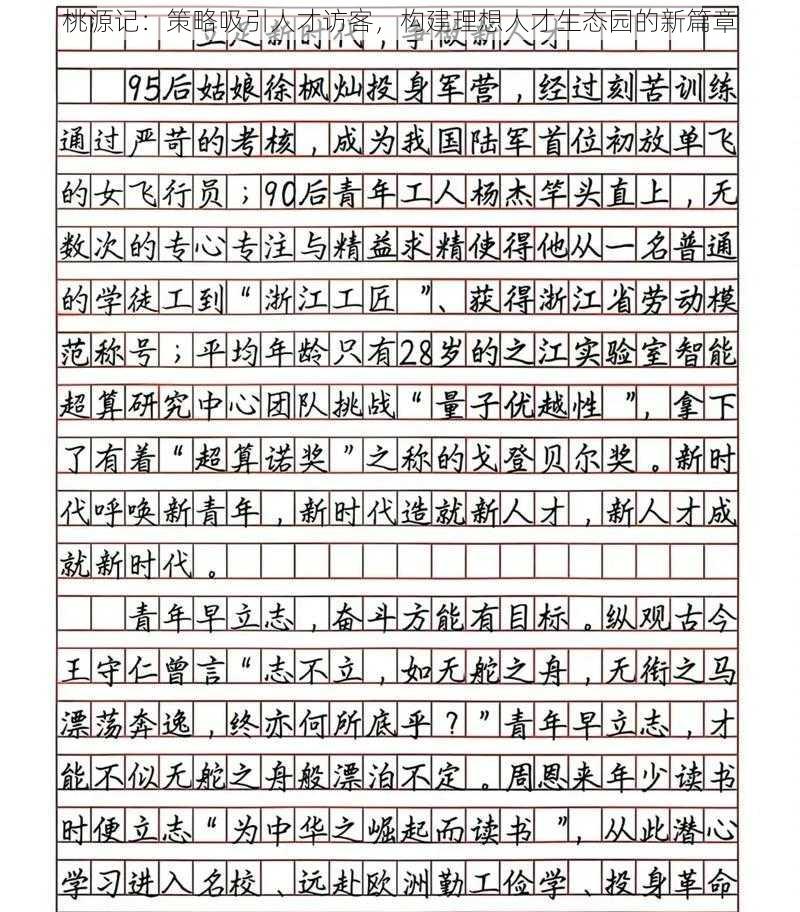 桃源记：策略吸引人才访客，构建理想人才生态园的新篇章
立足新时代，争做新人才
95后姑娘徐枫灿投身军营，经过刻苦训练
通过严苛的考核，成为我国陆军首位初放单飞
的女飞行员；90后青年工人杨杰竿头直上，无
数次的专心专注与精益求精使得他从一名普通
的学徒工到“浙江工匠”、获得浙江省劳动模
范称号；平均年龄只有28岁的之江实验室智能
超算研究中心团队挑战“量子优越性”，拿下
了有着“超算诺奖”之称的戈登贝尔奖。新时
代呼唤新青年，新时代造就新人才，新人才成
就新时代。
青年早立志，奋斗方能有目标。纵观古今
王守仁曾言“志不立，如无舵之舟，无衔之马
漂荡奔逸，终亦何所底乎？”青年早立志，才
能不似无舵之舟般漂泊不定。周恩来年少读书
时便立志“为中华之崛起而读书”，从此潜心
学习进入名校、远赴欧洲勤工俭学、投身革命